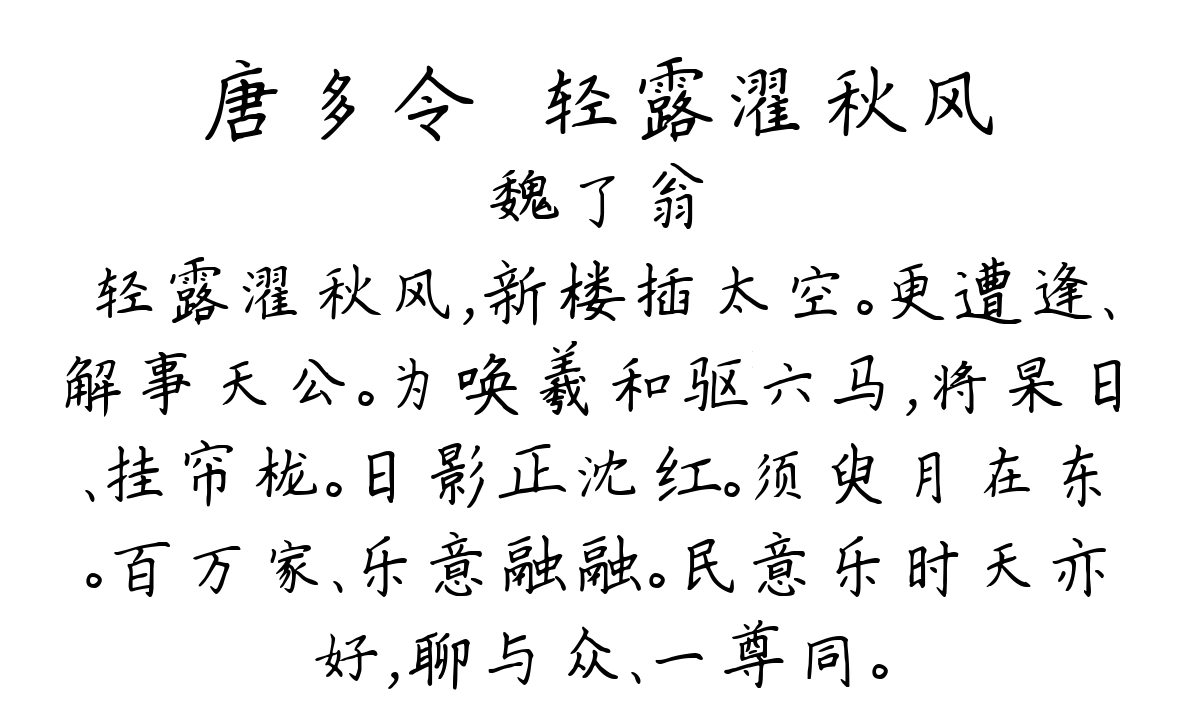 唐多令 轻露濯秋风
魏了翁
轻露濯秋风,新楼插太空。更遭逢、
解事天公。为唤羲和驱六马,将杲日
、挂帘栊。日影正沈红。须臾月在东
。百万家、乐意融融。民意乐时天亦
好,聊与众、一尊同。